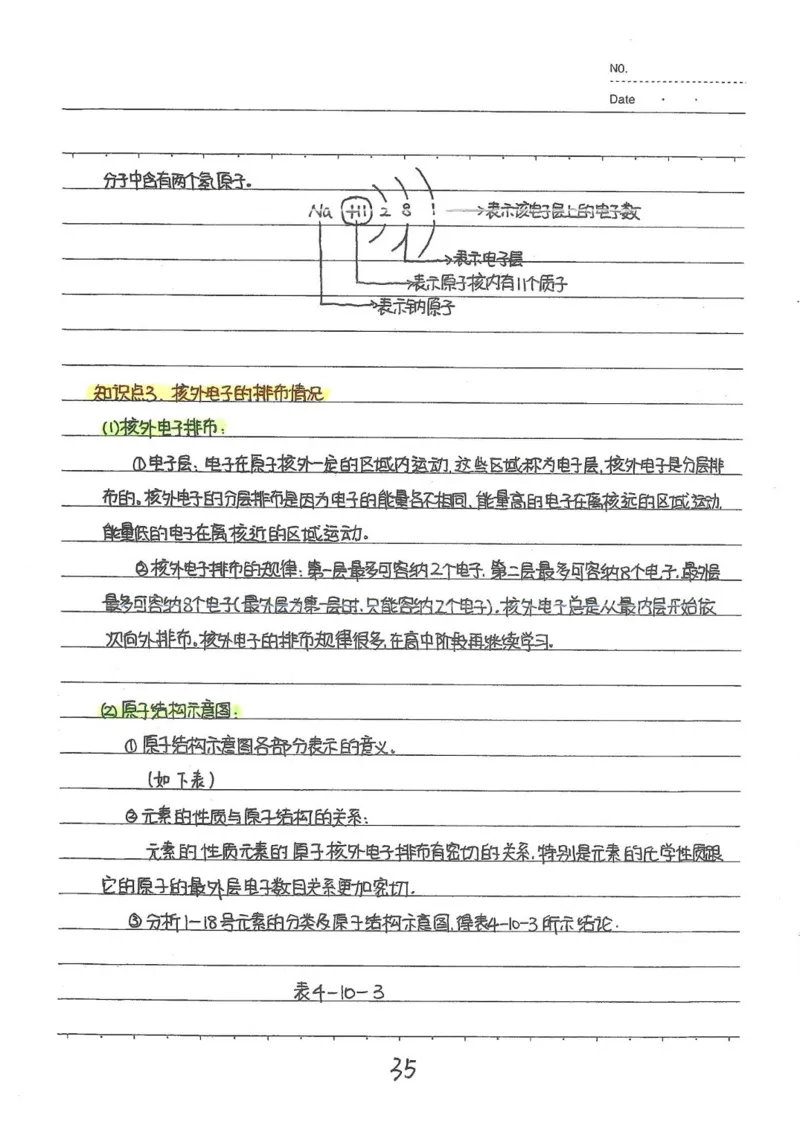 NO.
Date
分子中含有两个氢原子。
Na +11 2 8 1 →表示该电子层上的电子数
→表示电子层
→表示原子核内有11个质子
→表示钠原子
知识点3、核外电子的排布情况
(1)核外电子排布:
①电子层:电子在原子核外一定的区域内运动,这些区域称为电子层,核外电子是分层排
布的。核外电子的分层排布是因为电子的能量各不相同,能量高的电子在离核远的区域运动,
能量低的电子在离核近的区域运动。
②核外电子排布的规律:第一层最多可容纳2个电子,第二层最多可容纳8个电子,最外层
最多可容纳8个电子(最外层为第一层时,只能容纳2个电子),核外电子总是从最内层开始依
次向外排布。核外电子的排布规律很多,在高中阶段再继续学习。
(2)原子结构示意图:
①原子结构示意图各部分表示的意义。
(如下表)
②元素的性质与原子结构的关系:
元素的性质元素的原子核外电子排布有密切的关系,特别是元素的化学性质跟
它的原子的最外层电子数目关系更加密切.
③分析1-18号元素的分类及原子结构示意图,得表4-10-3所示结论.
表4-10-3
35